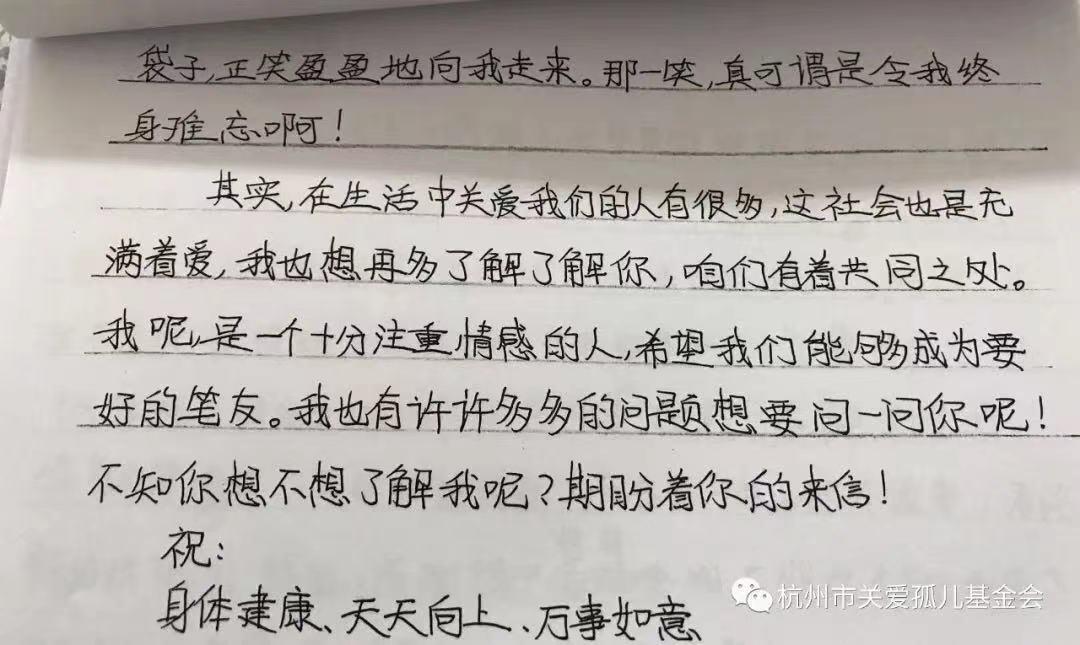 袋子,正笑盈盈地向我走来。那一笑,真可谓是令我终
身难忘啊!
其实,在生活中关爱我们的人有很多,这社会也是充
满着爱,我也想再多了解了解你,咱们有着共同之处。
我呢,是一个十分注重情感的人,希望我们能够成为要
好的笔友。我也有许许多多的问题想要问一问你呢!
不知你想不想了解我呢?期盼着你的来信!
祝:
身体健康、天天向上、万事如意
杭州市关爱孤儿基金会